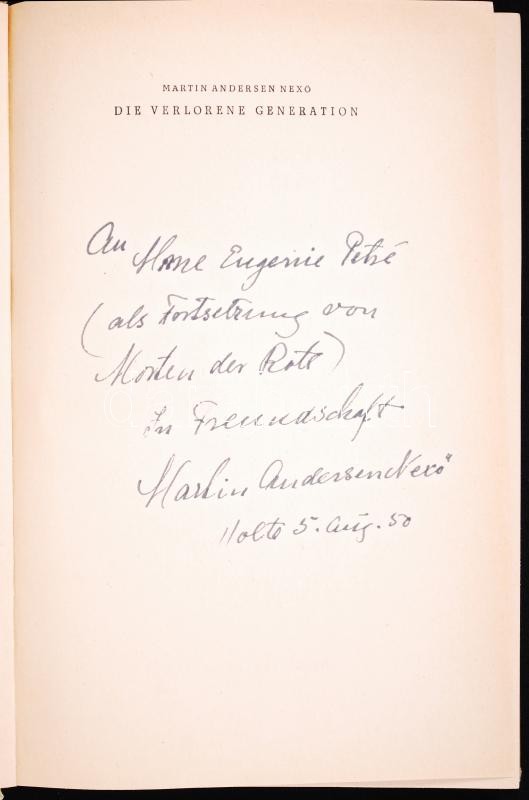 MARTIN ANDERSEN NEXÖ
DIE VERLORENE GENERATION
An Mme Eugenie Petré
(als Fortsetzung von
Morten der Rote)
In Freundschaft
Martin Andersen Nexö
Holte 5. Aug. 50